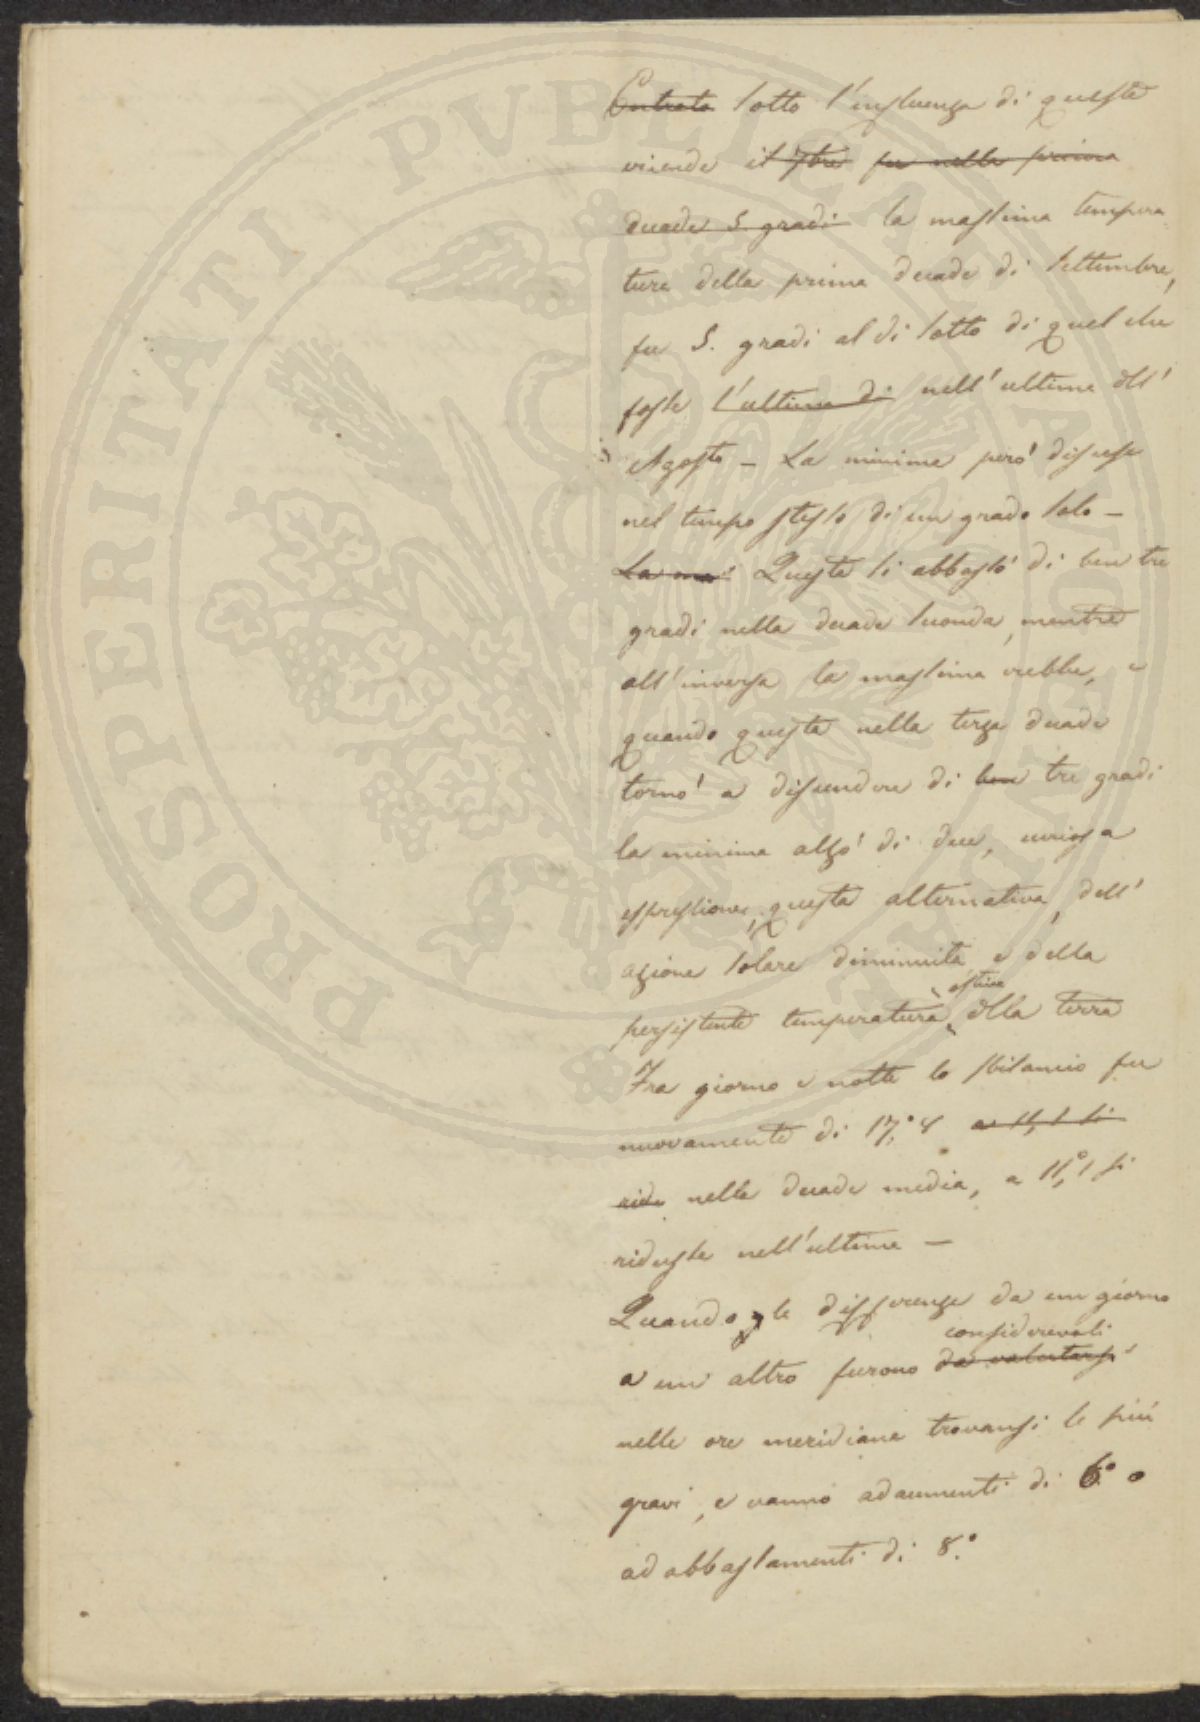 Entrato sotto l'influenza di queste
vicende il 7bre fu nella prima
decade 5. gradi la massima tempera
tura della prima decade di Settembre,
fu 5. gradi al di sotto di quel che
fosse l'ultima di nell'ultima dell'
Agosto – La minima però discese
nel tempo stesso di un grado solo –
La mas Questa si abbassò di ben tre
gradi nella decade seconda, mentre
all'inversa la massima crebbe, e
quando questa nella terza decade
tornò a discendere di ben tre gradi
la minima alzò di due, curiosa
espressione, questa alternativa, dell'
azione solare diminuita e della
estiva
persistente temperatura della terra
Fra giorno e notte lo sbilancio fu
nuovamente di 17,°8 a 11,1 si
ridu nella decade media, a 11,°1 si
ridusse nell'ultima –
Quando le differenze da un giorno
considerevoli
a un altro furono da valutarsi
nelle ore meridiane trovansi le più
gravi, e vanno ad aumenti di 6.° o
ad abbassamenti di 8.°
PROSPERITATI PVBLICAE AVGENDAE